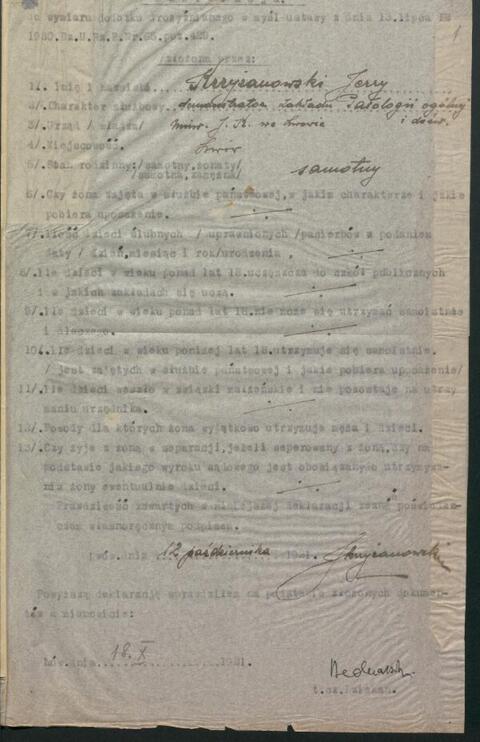 do wymiaru dodatku drożyźnianego w myśl ustawy z dnia 13.lipca
1920.Dz.U.Rz.P.Nr.65.poz.429.
1
/złożona przez:
1/. Imię i nazwisko Krzyżanowski Jerzy
2/.Charakter służbowy. demonstrator zakładu Patologii ogólnej
3/.Urząd / władza/ Uniw. J. K. we Lwowie i dośw.
4/.Miejscowość. Lwów
5/.Stan rodzinny:/samotny,żonaty/
/samotna,zamężna/ samotny
6/.Czy żona zajęta w służbie państwowej,w jakim charakterze i jakie
pobiera uposażenie.
7/.Ilość dzieci ślubnych /uprawnionych /pasierbów z podaniem
daty / dzień,miesiąc i rok/urodzenia.
8/.Ile dzieci w wieku ponad lat 18.uczęszcza do szkół publicznych
i w jakich zakładach się uczą.
9/.Ile dzieci w wieku ponad lat 18.nie może się utrzymać samoistnie
i dlaczego.
10/.Ile dzieci w wieku poniżej lat 18.utrzymuje się samoistnie.
/ jest zajętych w służbie państwowej i jakie pobiera uposażenie/
11/.Ile dzieci weszło w związki małżeńskie i nie pozostaje na utrzy
maniu urzędnika.
12/.Powody dla których żona wyjątkowo utrzymuje męża i dzieci.
13/.Czy żyje z żoną w separacji,jeżeli separowany z żoną,czy na
podstawie jakiego wyroku sądowego jest obowiązany do utrzymywa-
nia żony ewentualnie dzieci.
Prawdziwość zawartych w niniejszej deklaracji zeznań poświad-
czam własnoręcznym podpisem.
Lwów.dnia 12 października 1921. Krzyżanowski
Powyższą deklarację sprawdziłem na podstawie złożonych dokumen-
tów a mianowicie:
Lwów.dnia 18.X 1921.